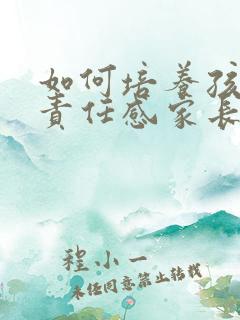 如何培养孩
责任感家长
程小一
未经同意禁止转载